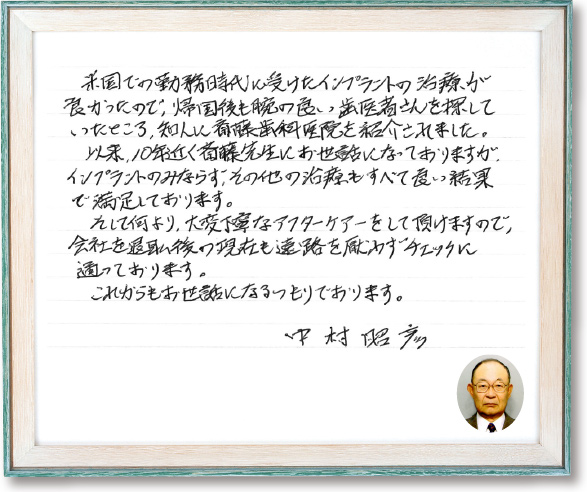 米国での勤務時代に受けたインプラントの治療が
良かったので、帰国後も腕の良い歯医者さんを探して
いったところ、知人に斎藤歯科医院を紹介されました。
以来、10年近く斎藤先生にお世話になっておりますが、
インプラントのみならず、その他の治療もすべて良い結果
で満足しております。
そして何より、大変丁寧なアフターケアーをして頂けますので、
会社を退職後の現在も遠路を厭わずチェックに
通っております。
これからもお世話になるつもりでおります。
中村昭彦